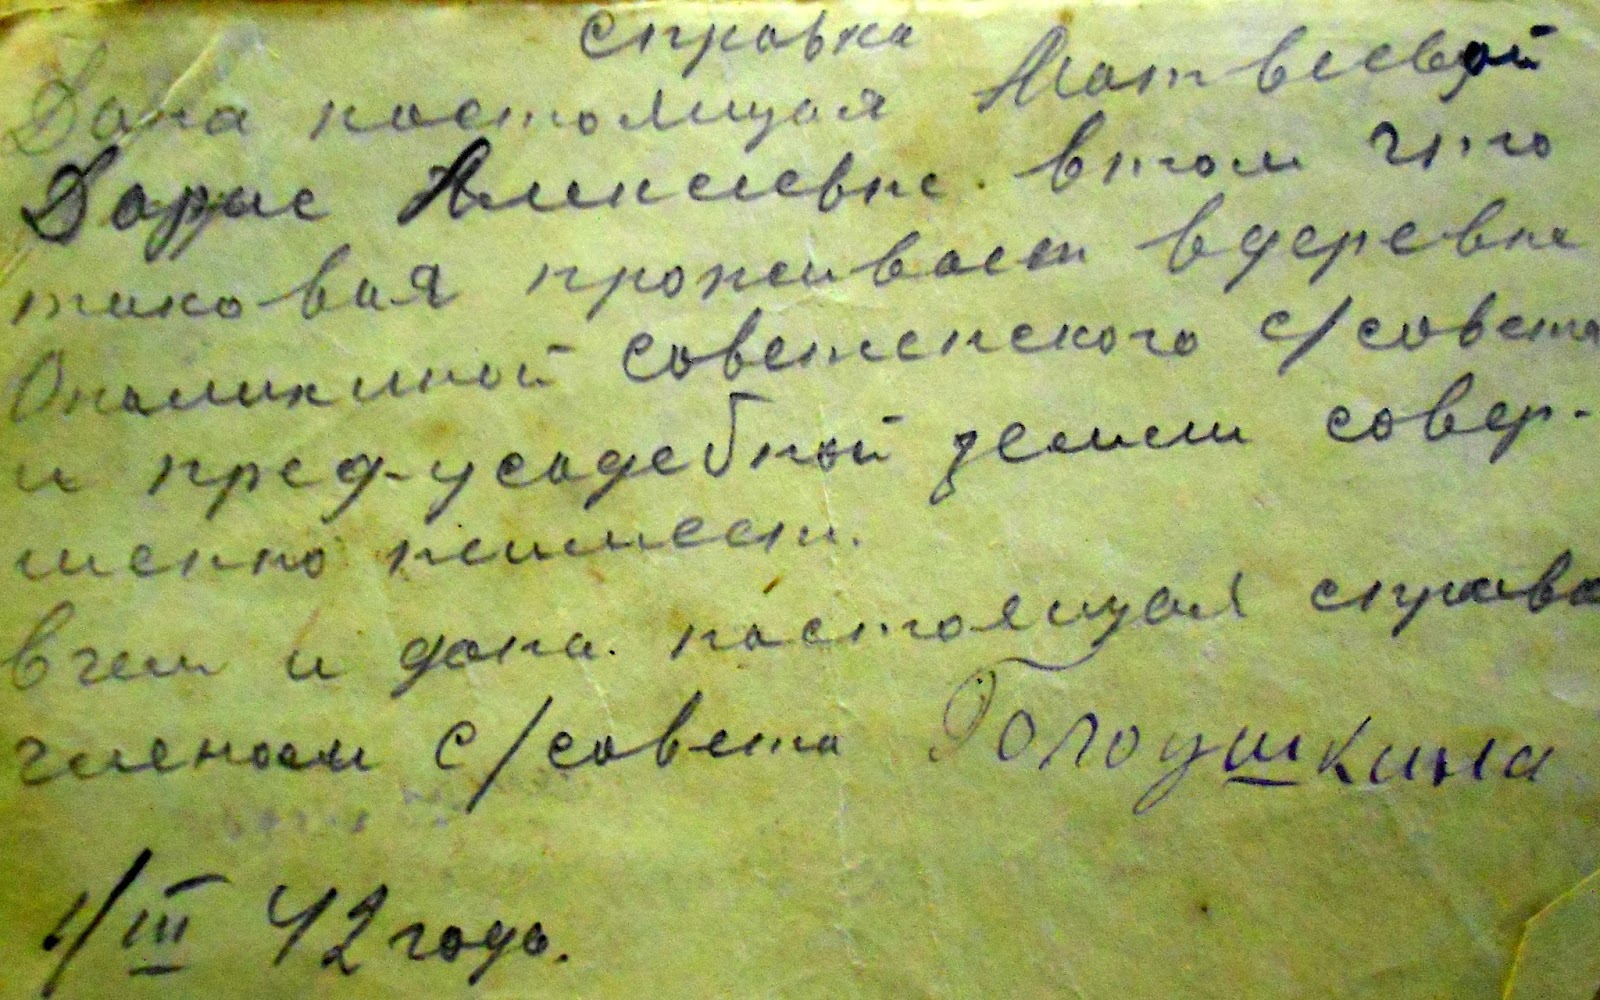 справка
Дана настоящая Матвеевой
Дарье Алексеевне. втом что
таковая проживает вдеревне
Опаликиной Советенского с/совета
и пред-усадебной земели совер-
шенно неимеет.
вчем и дана. настоящая справка
членом с/совета Голоушкина
1/III 42 года.